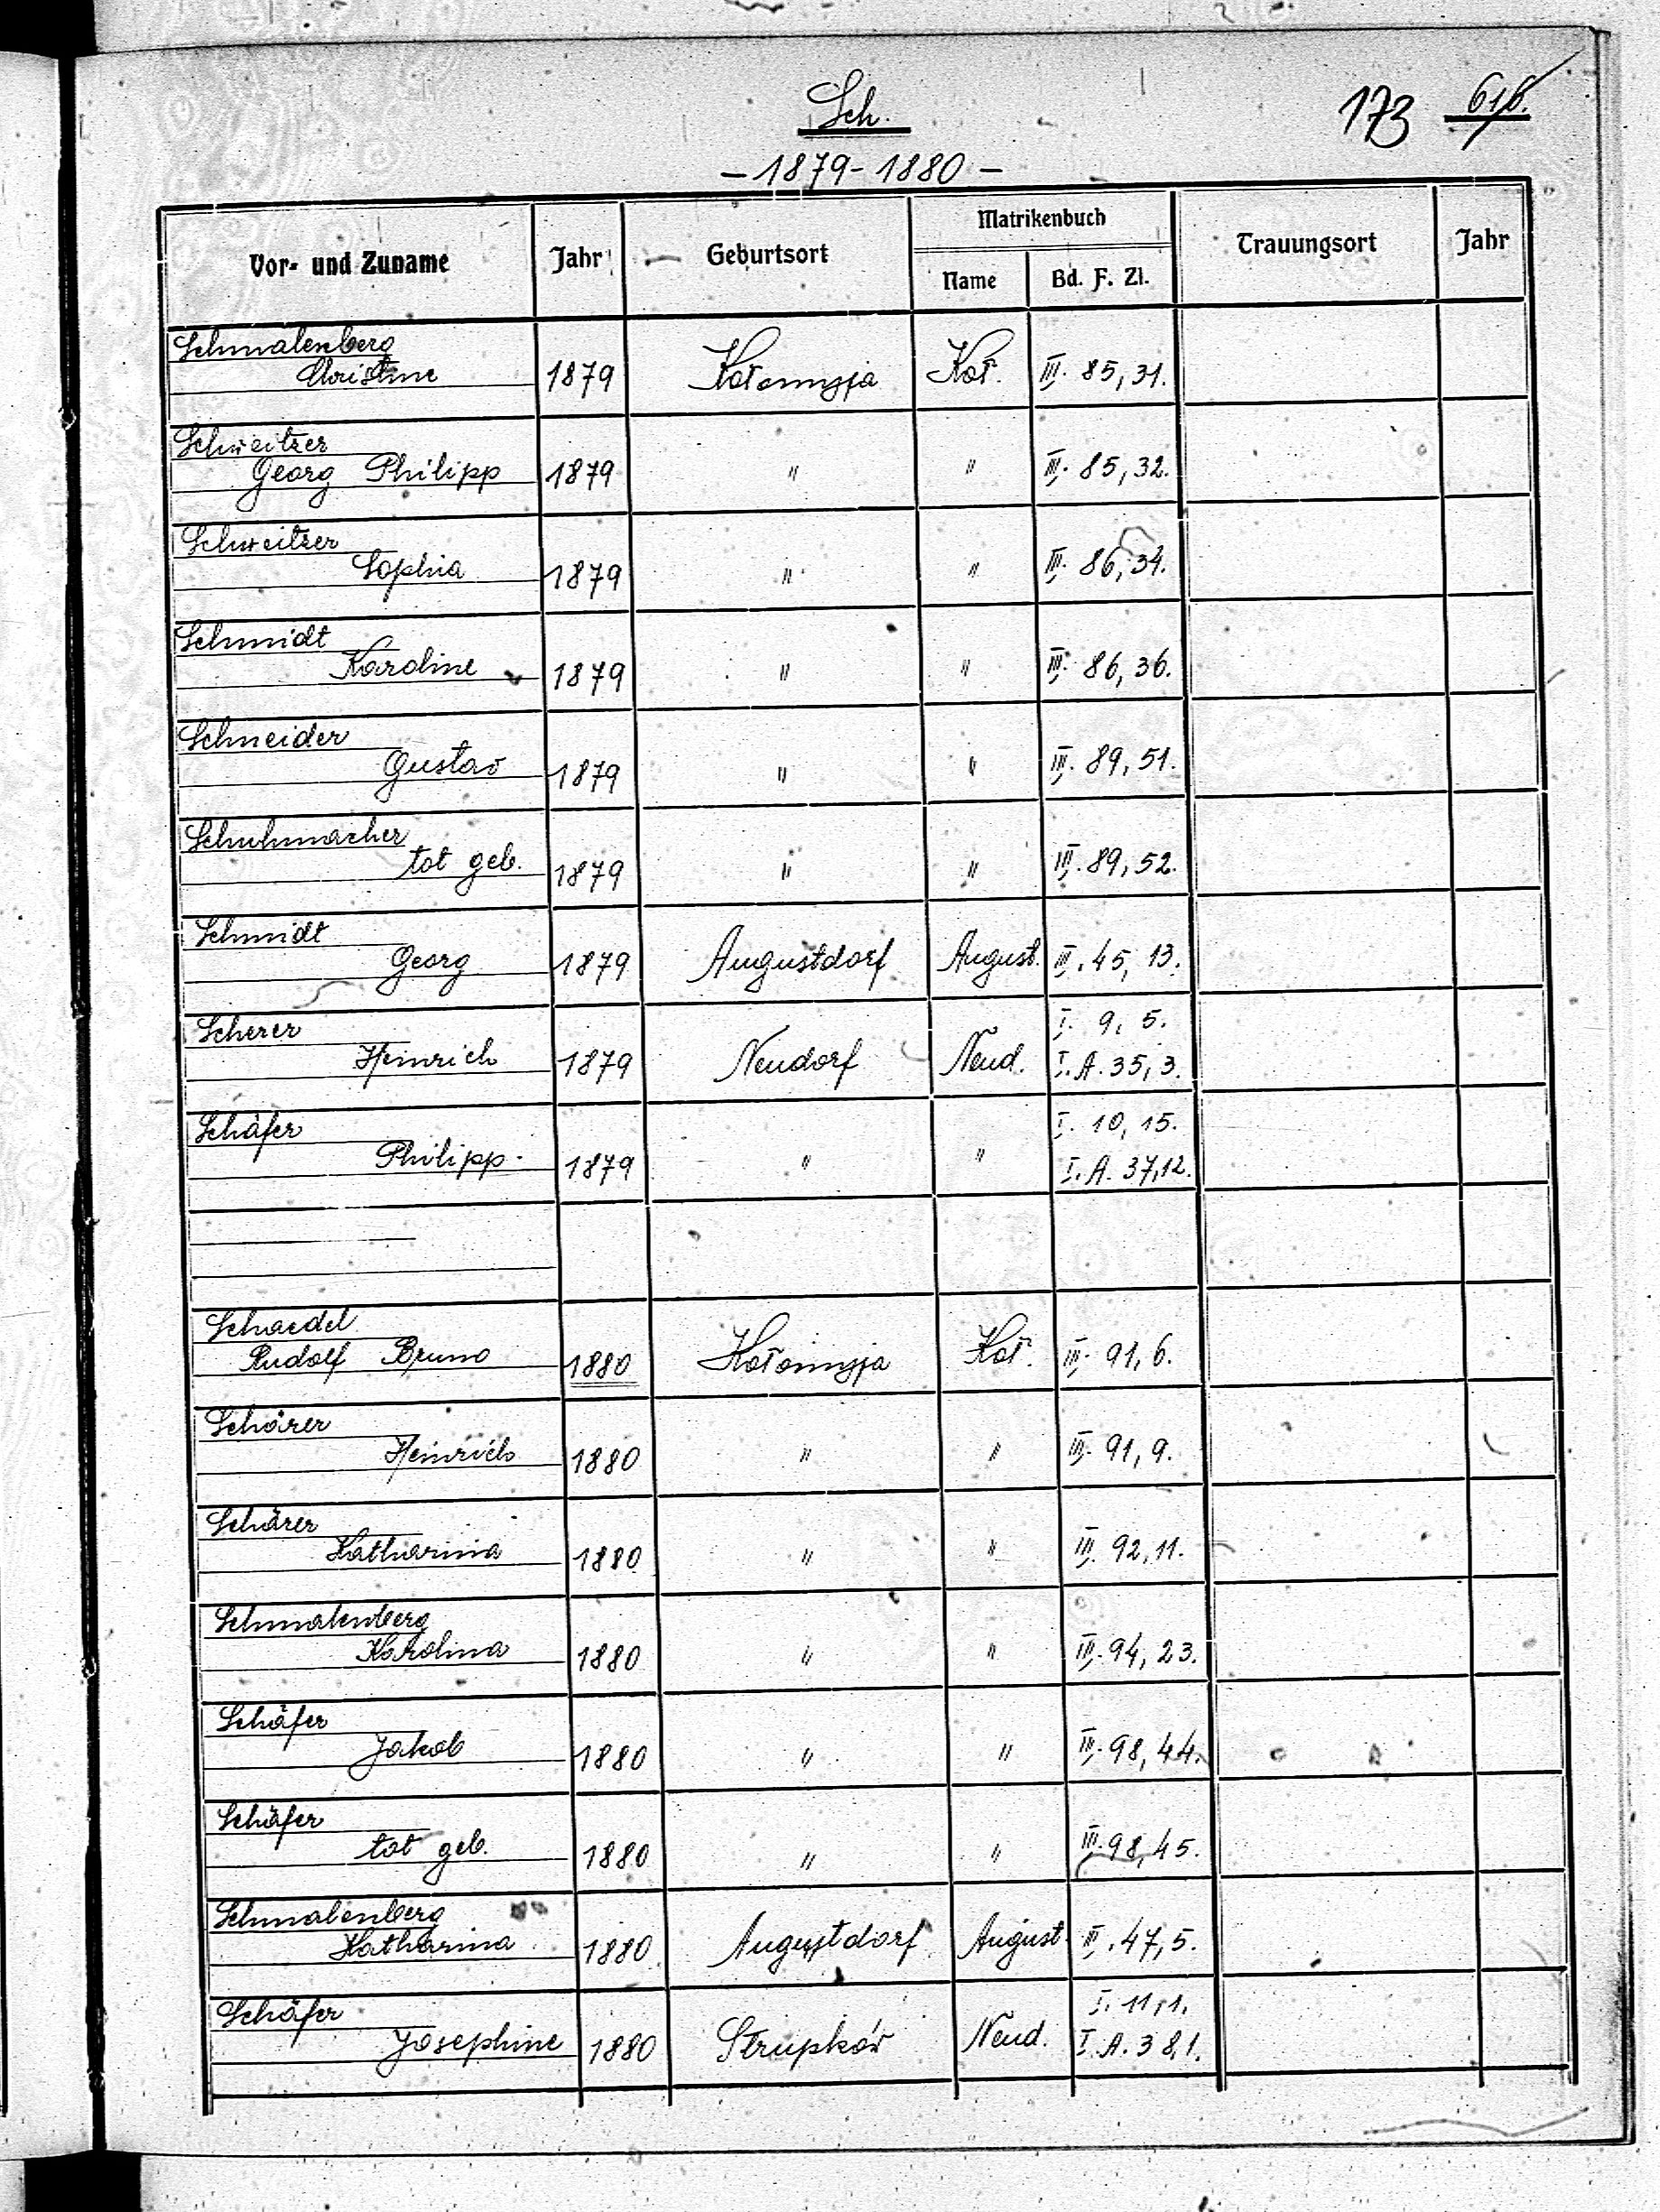 Sch.
173
- 1879 - 1880 -
Vor- und Zuname Jahr Geburtsort Matrikenbuch Trauungsort Jahr
Name Bd. F. Zl.
Schmalenberg
Christine 1879 Kołomyja Koł. III. 85, 31.
Schweitzer
Georg Philipp 1879 " " III. 85, 32.
Schweitzer
Sophia 1879 " " III. 86, 34.
Schmidt
Karoline 1879 " " III. 86, 36.
Schneider
Gustav 1879 " " III. 89, 51.
Schuhmacher
tot geb. 1879 " " III. 89, 52.
Schmidt
Georg 1879 Augustdorf August. II. 45, 13.
Scherer I. 9, 5.
Heinrich 1879 Neudorf Neud. I. A. 35, 3.
Schäfer I. 10, 15.
Philipp 1879 " " I. A. 37, 12.
Schaedel
Rudolf Bruno 1880 Kołomyja Koł. III. 91, 6.
Schärer
Heinrich 1880 " " III. 91, 9.
Schärer
Katharina 1880 " " III. 92, 11.
Schmalenberg
Karolina 1880 " " III. 94, 23.
Schäfer
Jakob 1880 " " III. 98, 44.
Schäfer
tot geb. 1880 " " III. 98, 45.
Schmalenberg
Katharina 1880 Augustdorf August. II. 47, 5.
Schäfer I. 11, 1.
Josephine 1880 Strupków Neud. I. A. 38, 1.